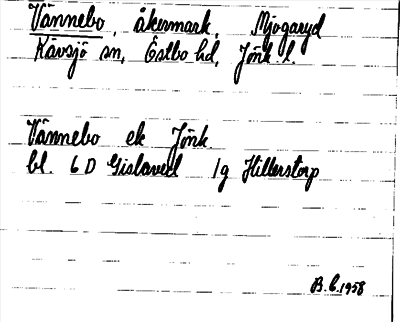 Vännebo, åkermark, Mjogaryd
Kävsjö sn, Östbo hd, Jönk. l.
Vännebo ek Jönk.
bl. 6 D Gislaved 1g Hillerstorp
B. C. 1958